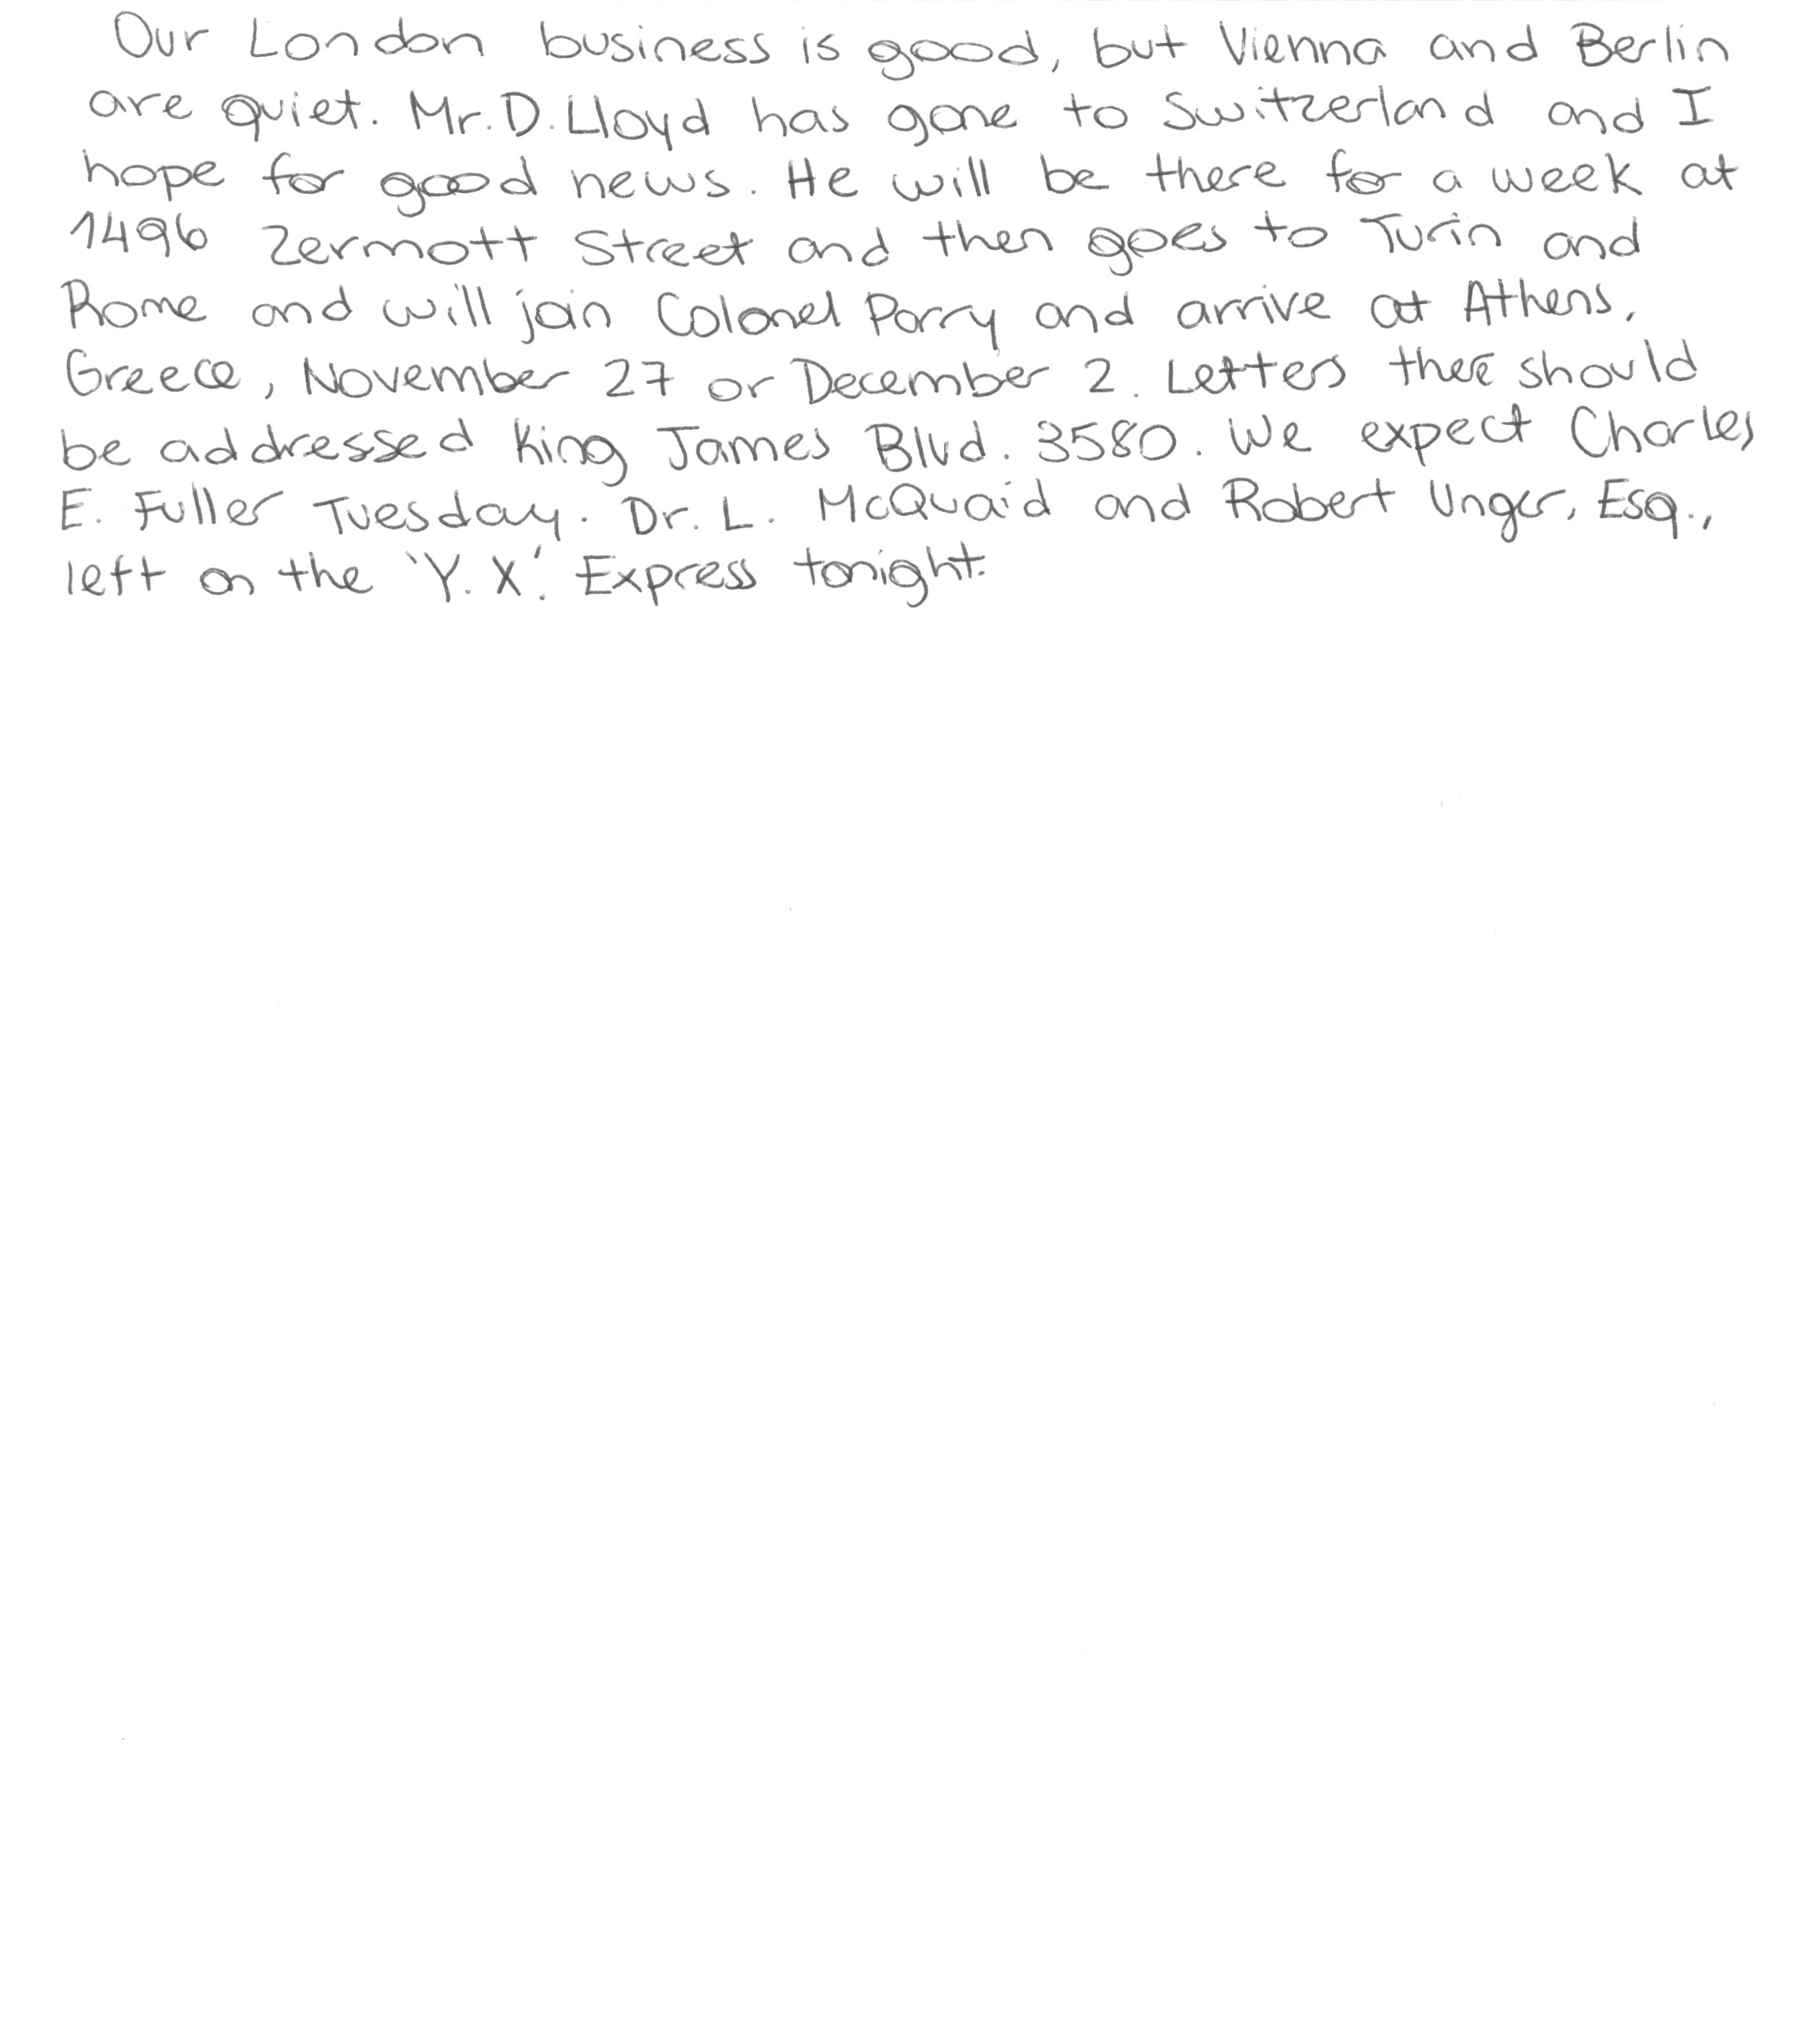 Our London business is good, but Vienna and Berlin
are quiet. Mr. D. Lloyd has gone to Switzerland and I
hope for good news. He will be there for a week at
1496 Zermott Street and then goes to Turin and
Rome and will join Colonel Parry and arrive at Athens,
Greece, November 27 or December 2. Letters there should
be addressed King James Blvd. 3580. We expect Charles
E. Fuller Tuesday. Dr. L. McQuaid and Robert Unger, Esq.,
left on the 'Y. X.' Express tonight.